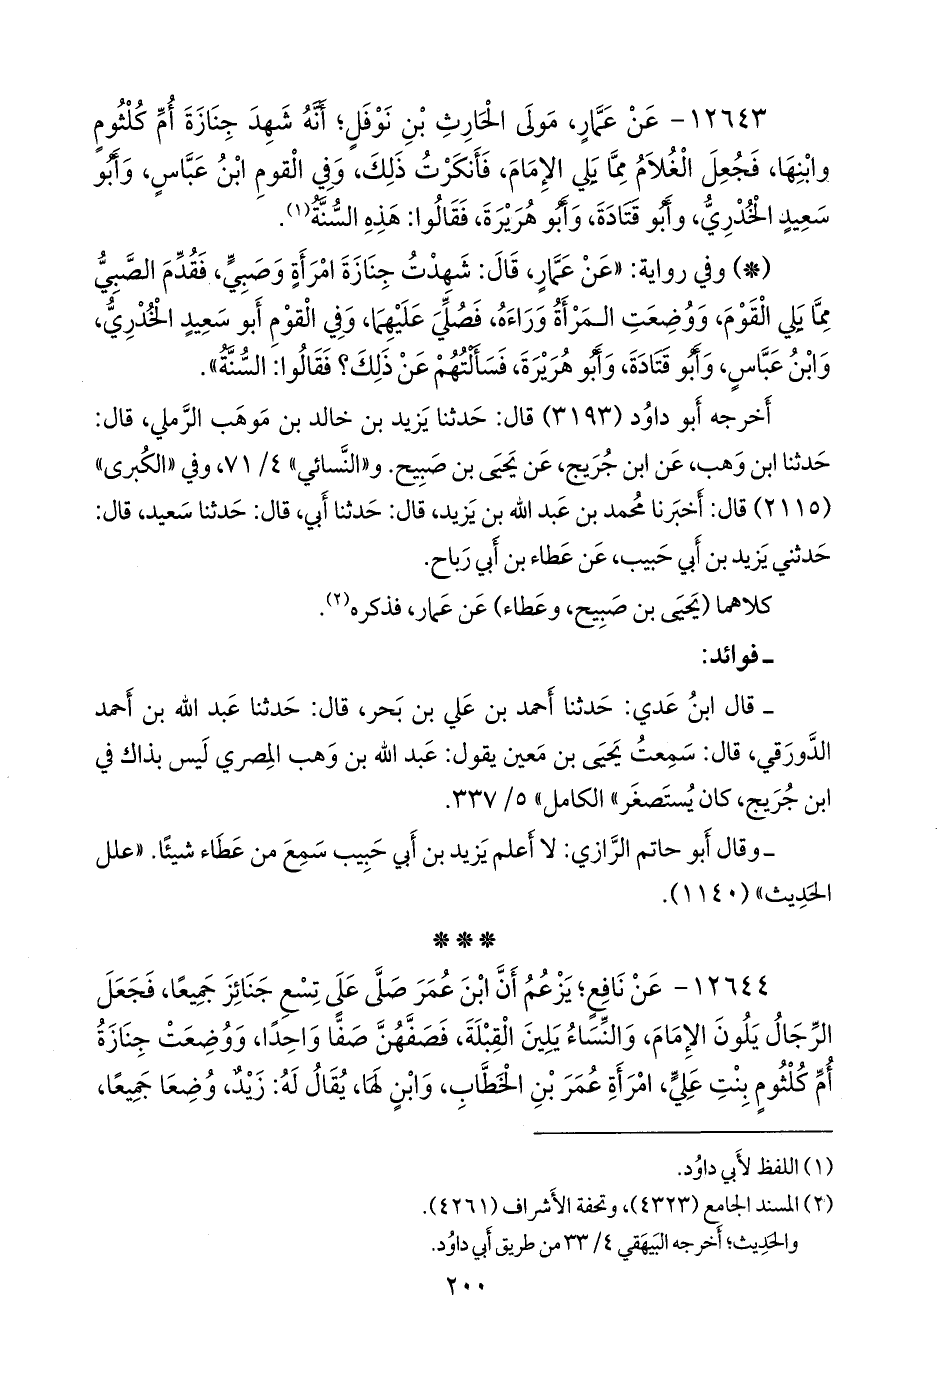 ١٢٦٤٣- عَنْ عَمَّارٍ، مَولَى الْحَارِثِ بْنِ نَوْفَلٍ؛ أَنَّهُ شَهِدَ جِنَازَةَ أُمِّ كُلْثُومٍ
وابْنِهَا، فَجُعِلَ الْغُلاَمُ مِمَّا يَلِي الإِمَامَ، فَأَنْكَرْتُ ذَلِكَ، وَفِي الْقومِ ابْنُ عَبَّاسٍ، وَأَبُو
سَعِيدٍ الْخُدْرِيُّ، وأَبُو قَتَادَةَ، وَأَبُو هُرَيْرَةَ، فَقَالُوا: هَذِهِ السُّنَّةُ(١).
(*) وفي رواية: «عَنْ عَمَّارٍ، قَالَ: شَهِدْتُ جِنَازَةَ امْرَأَةٍ وَصَبِيٍّ، فَقُدِّمَ الصَّبِيُّ
مِمَّا يَلِي الْقَوْمَ، وَوُضِعَتِ الـمَرْأَةُ وَرَاءَهُ، فَصُلِّيَ عَلَيْهِمَا، وَفِي الْقَوْمِ أَبو سَعِيدٍ الْخُدْرِيُّ،
وَابْنُ عَبَّاسٍ، وَأَبُو قَتَادَةَ، وَأَبُو هُرَيْرَةَ، فَسَأَلْتُهُمْ عَنْ ذَلِكَ؟ فَقَالُوا: السُّنَّةُ».
أَخرجه أَبو داوُد (٣١٩٣) قال: حَدثنا يَزيد بن خالد بن مَوهَب الرَّملي، قال:
حَدثنا ابن وَهب، عَن ابن جُرَيج، عَن يَحيَى بن صَبيح. و«النَّسائي» ٤/ ٧١، وفي «الكُبرى»
(٢١١٥) قال: أَخبَرنا مُحمد بن عَبد الله بن يَزيد، قال: حَدثنا أَبي، قال: حَدثنا سَعيد، قال:
حَدثني يَزيد بن أَبي حَبيب، عَن عَطاء بن أَبي رَباح.
كلاهما (يَحيَى بن صَبِيح، وعَطاء) عَن عَمار، فذكره(٢).
ـ فوائد:
ـ قال ابنُ عَدي: حَدثنا أَحمد بن علي بن بَحر، قال: حَدثنا عَبد الله بن أَحمد
الدَّورَقي، قال: سَمِعتُ يَحيَى بن مَعين يقول: عَبد الله بن وَهب المِصري لَيس بذاك في
ابن جُرَيج، كان يُستَصغَر» الكامل» ٥/ ٣٣٧.
ـ وقال أَبو حاتم الرَّازي: لا أَعلم يَزيد بن أَبي حَبِيب سَمِعَ من عَطَاء شيئًا. «علل
الحَدِيث» (١١٤٠).
* * *
١٢٦٤٤- عَنْ نَافِعٍ؛ يَزْعُمُ أَنَّ ابْنَ عُمَرَ صَلَّى عَلَى تِسْعِ جَنَائِزَ جَمِيعًا، فَجَعَلَ
الرِّجَالُ يَلُونَ الإِمَامَ، وَالنِّسَاءُ يَلِينَ الْقِبْلَةَ، فَصَفَّهُنَّ صَفًّا وَاحِدًا، وَوُضِعَتْ جِنَازَةُ
أُمِّ كُلْثُومٍ بِنْتِ عَلِيٍّ، امْرَأَةِ عُمَرَ بْنِ الْخَطَّابِ، وَابْنٍ لَهَا، يُقَالُ لَهُ: زَيْدٌ، وُضِعَا جَمِيعًا،
(١) اللفظ لأَبي داوُد.
(٢) المسند الجامع (٤٣٢٣)، وتحفة الأَشراف (٤٢٦١).
والحَدِيث؛ أَخرجه البَيهَقي ٤/ ٣٣ من طريق أَبي داوُد.
٢٠٠